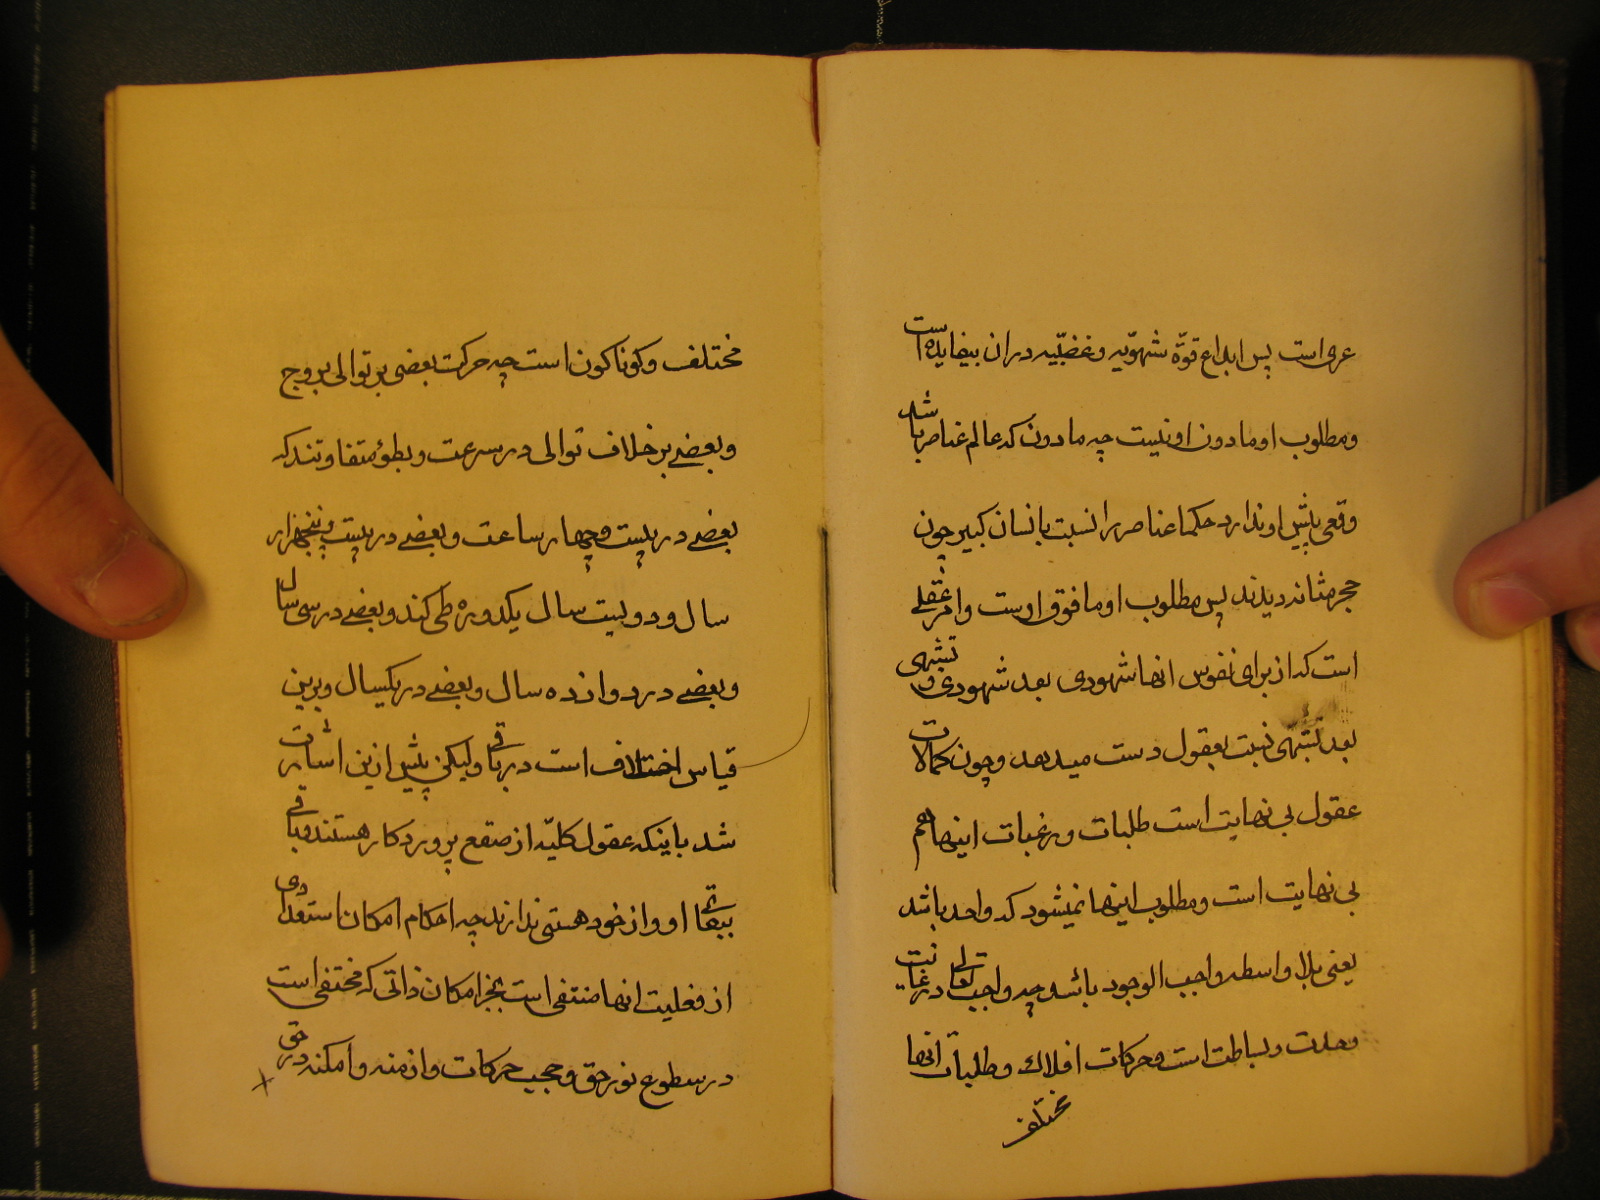 عری است پس ابداع قوّه شهویّه و غضبیّه در ان بیفایده است
و مطلوب او مادون او نیست چه مادون که عالم عناصر باشد
وقعی پیش او ندارد حکما عناصر را نسبت بانسان کبیر چون
حجر مثانه دیدند پس مطلوب او مافوق اوست و امر عقلی
است که از برای نفوس انها شهودی بعد شهودی و تشبّهی
بعد تشبّهی نسبت بعقول دست میدهد و چون کمالات
عقول بی نهایت است طلبات و رغبات اینها هم
بی نهایت است و مطلوب اینها نمیشود که واحد باشد
یعنی بلا واسطه واجب الوجود باشد چه واجب تعالی در غایت
وحدت و بساطت است و حرکات افلاك و طلبات انها
مختلف
مختلف و کوناکون است چه حرکت بعضی بر توالی بروج
و بعضی بر خلاف توالی در سرعت و بطؤ متفاوتند که
بعضی در بیست و چهار ساعت و بعضی در بیست و پنجهزار
سال و دویست سال یکدوره طی کند و بعضی در سی سال
و بعضی در دوازده سال و بعضی در یکسال و برین
قیاس اختلاف است در باقی ولیکن پیش ازین اشارت
شد باینکه عقول کلیّه از صقع پروردکار هستند و باقی
ببقاء او و از خود هستی ندارند چه احکام امکان استعدادی
از فعلیت انها منتفی است بجز امکان ذاتی که مختفی است
در سطوع نور حق و حجب حرکات و ازمنه و امکنه در حق